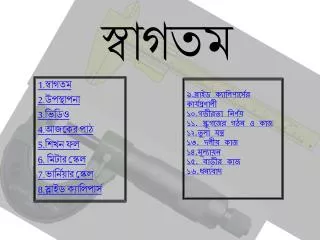 স্বাগতম
1.স্বাগতম
2.উপস্থাপনা
3.ভিডিও
4.আজকের পাঠ
5.শিখন ফল
6. মিটার স্কেল
7.ভার্নিয়ার স্কেল
8.স্লাইড ক্যালিপার্স
৯.স্লাইড ক্যালিপার্সের
কার্যপ্রণালী
১০.গভীরতা নির্ণয়
১১. স্ক্রুগজের গঠন ও কাজ
১২.তুলা যন্ত্র
১৩. দলীয় কাজ
১৪.মূল্যায়ন
১৫. বাড়ীর কাজ
১৬.ধন্যবাদ